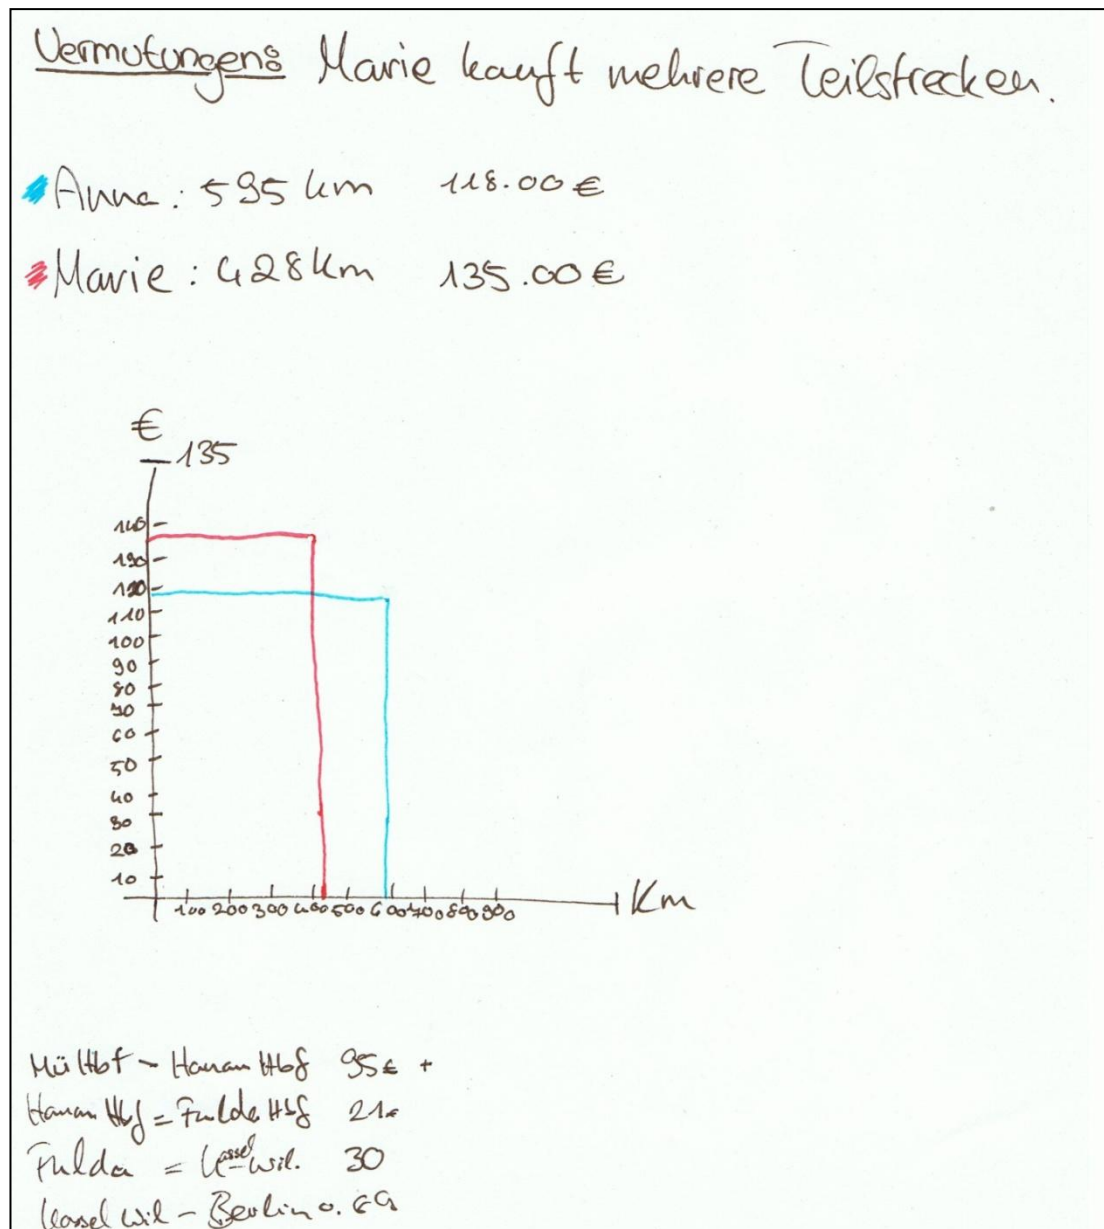 Vermutungen: Marie kauft mehrere Teilstrecken.
Anna: 595 km 118.00 €
Marie: 428 km 135.00 €
€
135
140
130
120
110
100
90
80
70
60
50
40
30
20
10
100 200 300 400 500 600 700 800 900 Km
Mü Hbf - Hanau Hbf 95€ +
Hanau Hbf = Fulda Hbf 21€
Fulda = Kassel-Wil. 30
Kassel Wil - Berlin o. 69